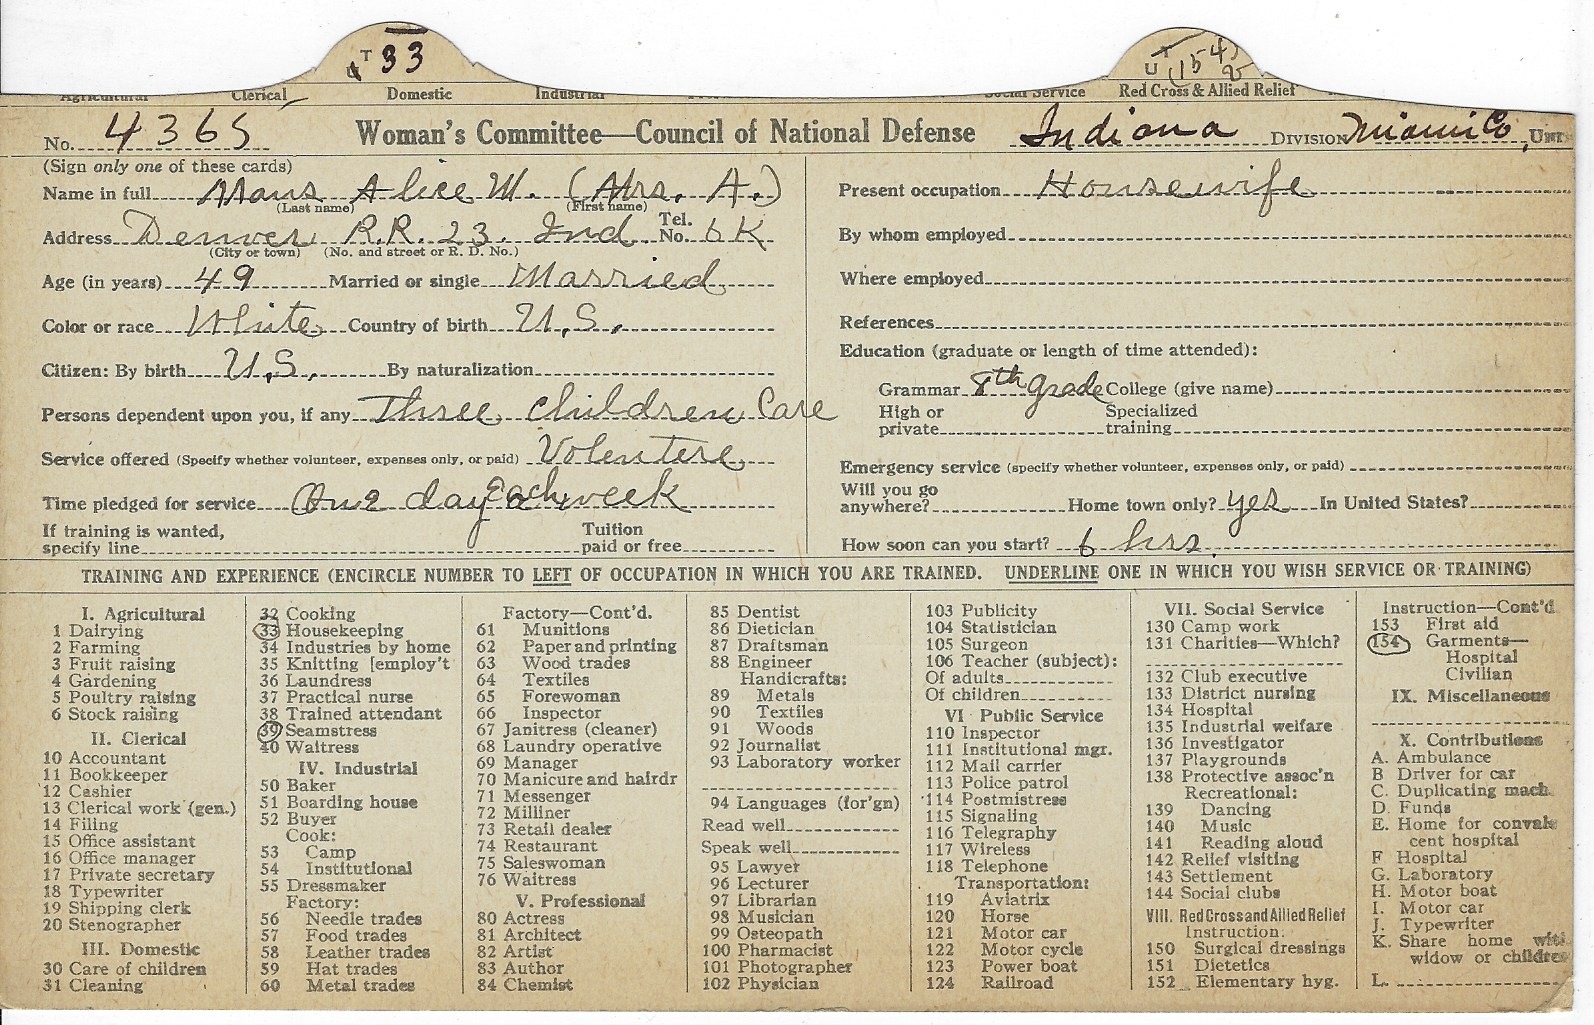 T 33
U T (154) 2
Clerical Domestic Industrial Social Service Red Cross & Allied Relief
No. 4365 Woman's Committee—Council of National Defense Indiana DIVISION Miami Co. UNIT
(Sign only one of these cards)
Name in full Maus Alice M. (Mrs. A.)
(Last name) (First name)
Address Denver R.R. 23. Ind. Tel. No. 6K
(City or town) (No. and street or R. D. No.)
Age (in years) 49 Married or single Married
Color or race White Country of birth U.S.
Citizen: By birth U.S. By naturalization
Persons dependent upon you, if any Three children Care
Service offered (Specify whether volunteer, expenses only, or paid) Volentere
Time pledged for service One day a each week
If training is wanted, specify line Tuition paid or free
Present occupation Housewife
By whom employed
Where employed
References
Education (graduate or length of time attended):
Grammar 8th grade College (give name)
High or private Specialized training
Emergency service (specify whether volunteer, expenses only, or paid)
Will you go anywhere? Home town only? yes In United States?
How soon can you start? 6 hrs.
TRAINING AND EXPERIENCE (ENCIRCLE NUMBER TO LEFT OF OCCUPATION IN WHICH YOU ARE TRAINED. UNDERLINE ONE IN WHICH YOU WISH SERVICE OR TRAINING)
I. Agricultural
1 Dairying
2 Farming
3 Fruit raising
4 Gardening
5 Poultry raising
6 Stock raising
II. Clerical
10 Accountant
11 Bookkeeper
12 Cashier
13 Clerical work (gen.)
14 Filing
15 Office assistant
16 Office manager
17 Private secretary
18 Typewriter
19 Shipping clerk
20 Stenographer
III. Domestic
30 Care of children
31 Cleaning
32 Cooking
33 Housekeeping
34 Industries by home
35 Knitting [employ't
36 Laundress
37 Practical nurse
38 Trained attendant
39 Seamstress
40 Waitress
IV. Industrial
50 Baker
51 Boarding house
52 Buyer
Cook:
53 Camp
54 Institutional
55 Dressmaker
Factory:
56 Needle trades
57 Food trades
58 Leather trades
59 Hat trades
60 Metal trades
Factory—Cont'd.
61 Munitions
62 Paper and printing
63 Wood trades
64 Textiles
65 Forewoman
66 Inspector
67 Janitress (cleaner)
68 Laundry operative
69 Manager
70 Manicure and hairdr
71 Messenger
72 Milliner
73 Retail dealer
74 Restaurant
75 Saleswoman
76 Waitress
V. Professional
80 Actress
81 Architect
82 Artist
83 Author
84 Chemist
85 Dentist
86 Dietician
87 Draftsman
88 Engineer
Handicrafts:
89 Metals
90 Textiles
91 Woods
92 Journalist
93 Laboratory worker
94 Languages (for'gn)
Read well
Speak well
95 Lawyer
96 Lecturer
97 Librarian
98 Musician
99 Osteopath
100 Pharmacist
101 Photographer
102 Physician
103 Publicity
104 Statistician
105 Surgeon
106 Teacher (subject):
Of adults
Of children
VI Public Service
110 Inspector
111 Institutional mgr.
112 Mail carrier
113 Police patrol
114 Postmistress
115 Signaling
116 Telegraphy
117 Wireless
118 Telephone
Transportation:
119 Aviatrix
120 Horse
121 Motor car
122 Motor cycle
123 Power boat
124 Railroad
VII. Social Service
130 Camp work
131 Charities—Which?
132 Club executive
133 District nursing
134 Hospital
135 Industrial welfare
136 Investigator
137 Playgrounds
138 Protective assoc'n
Recreational:
139 Dancing
140 Music
141 Reading aloud
142 Relief visiting
143 Settlement
144 Social clubs
VIII. Red Cross and Allied Relief
Instruction:
150 Surgical dressings
151 Dietetics
152 Elementary hyg.
Instruction—Cont'd
153 First aid
154 Garments—
Hospital
Civilian
IX. Miscellaneous
X. Contributions
A. Ambulance
B Driver for car
C. Duplicating mach.
D. Funds
E. Home for convales
cent hospital
F Hospital
G. Laboratory
H. Motor boat
I. Motor car
J. Typewriter
K. Share home with
widow or children
L.